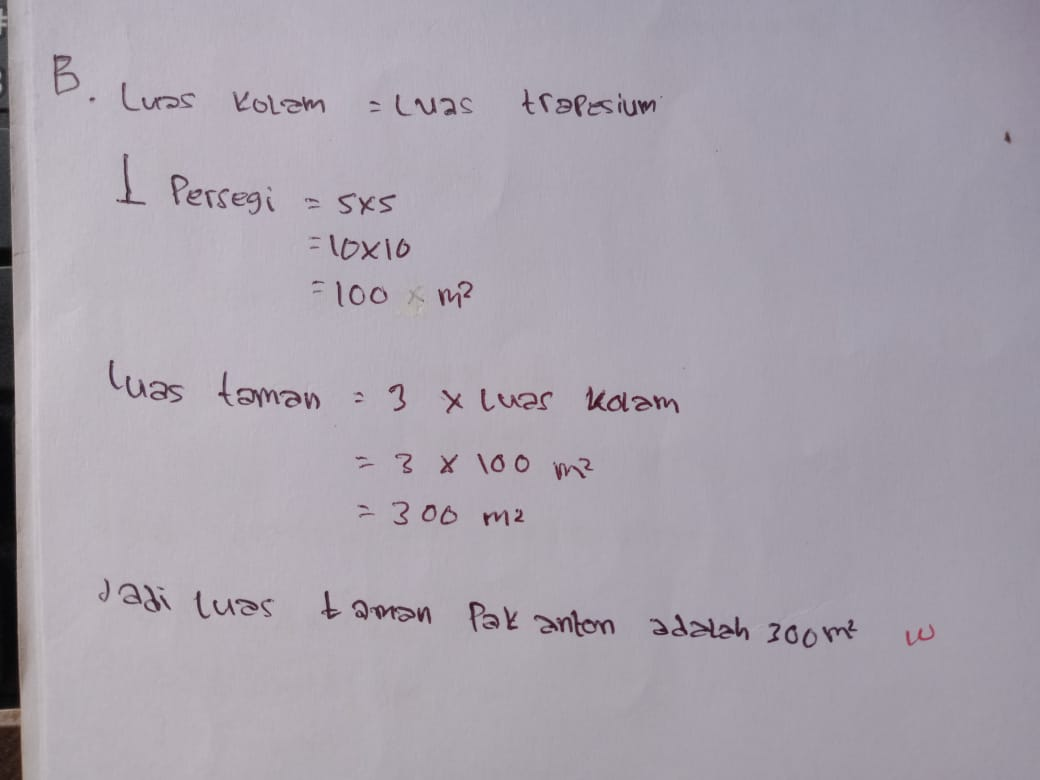 B. Luas kolam = Luas trapesium
1 Persegi = 5x5
= 10x10
= 100 m²
luas taman = 3 x luas kolam
= 3 x 100 m²
= 300 m2
Jadi luas taman Pak anton adalah 300 m²